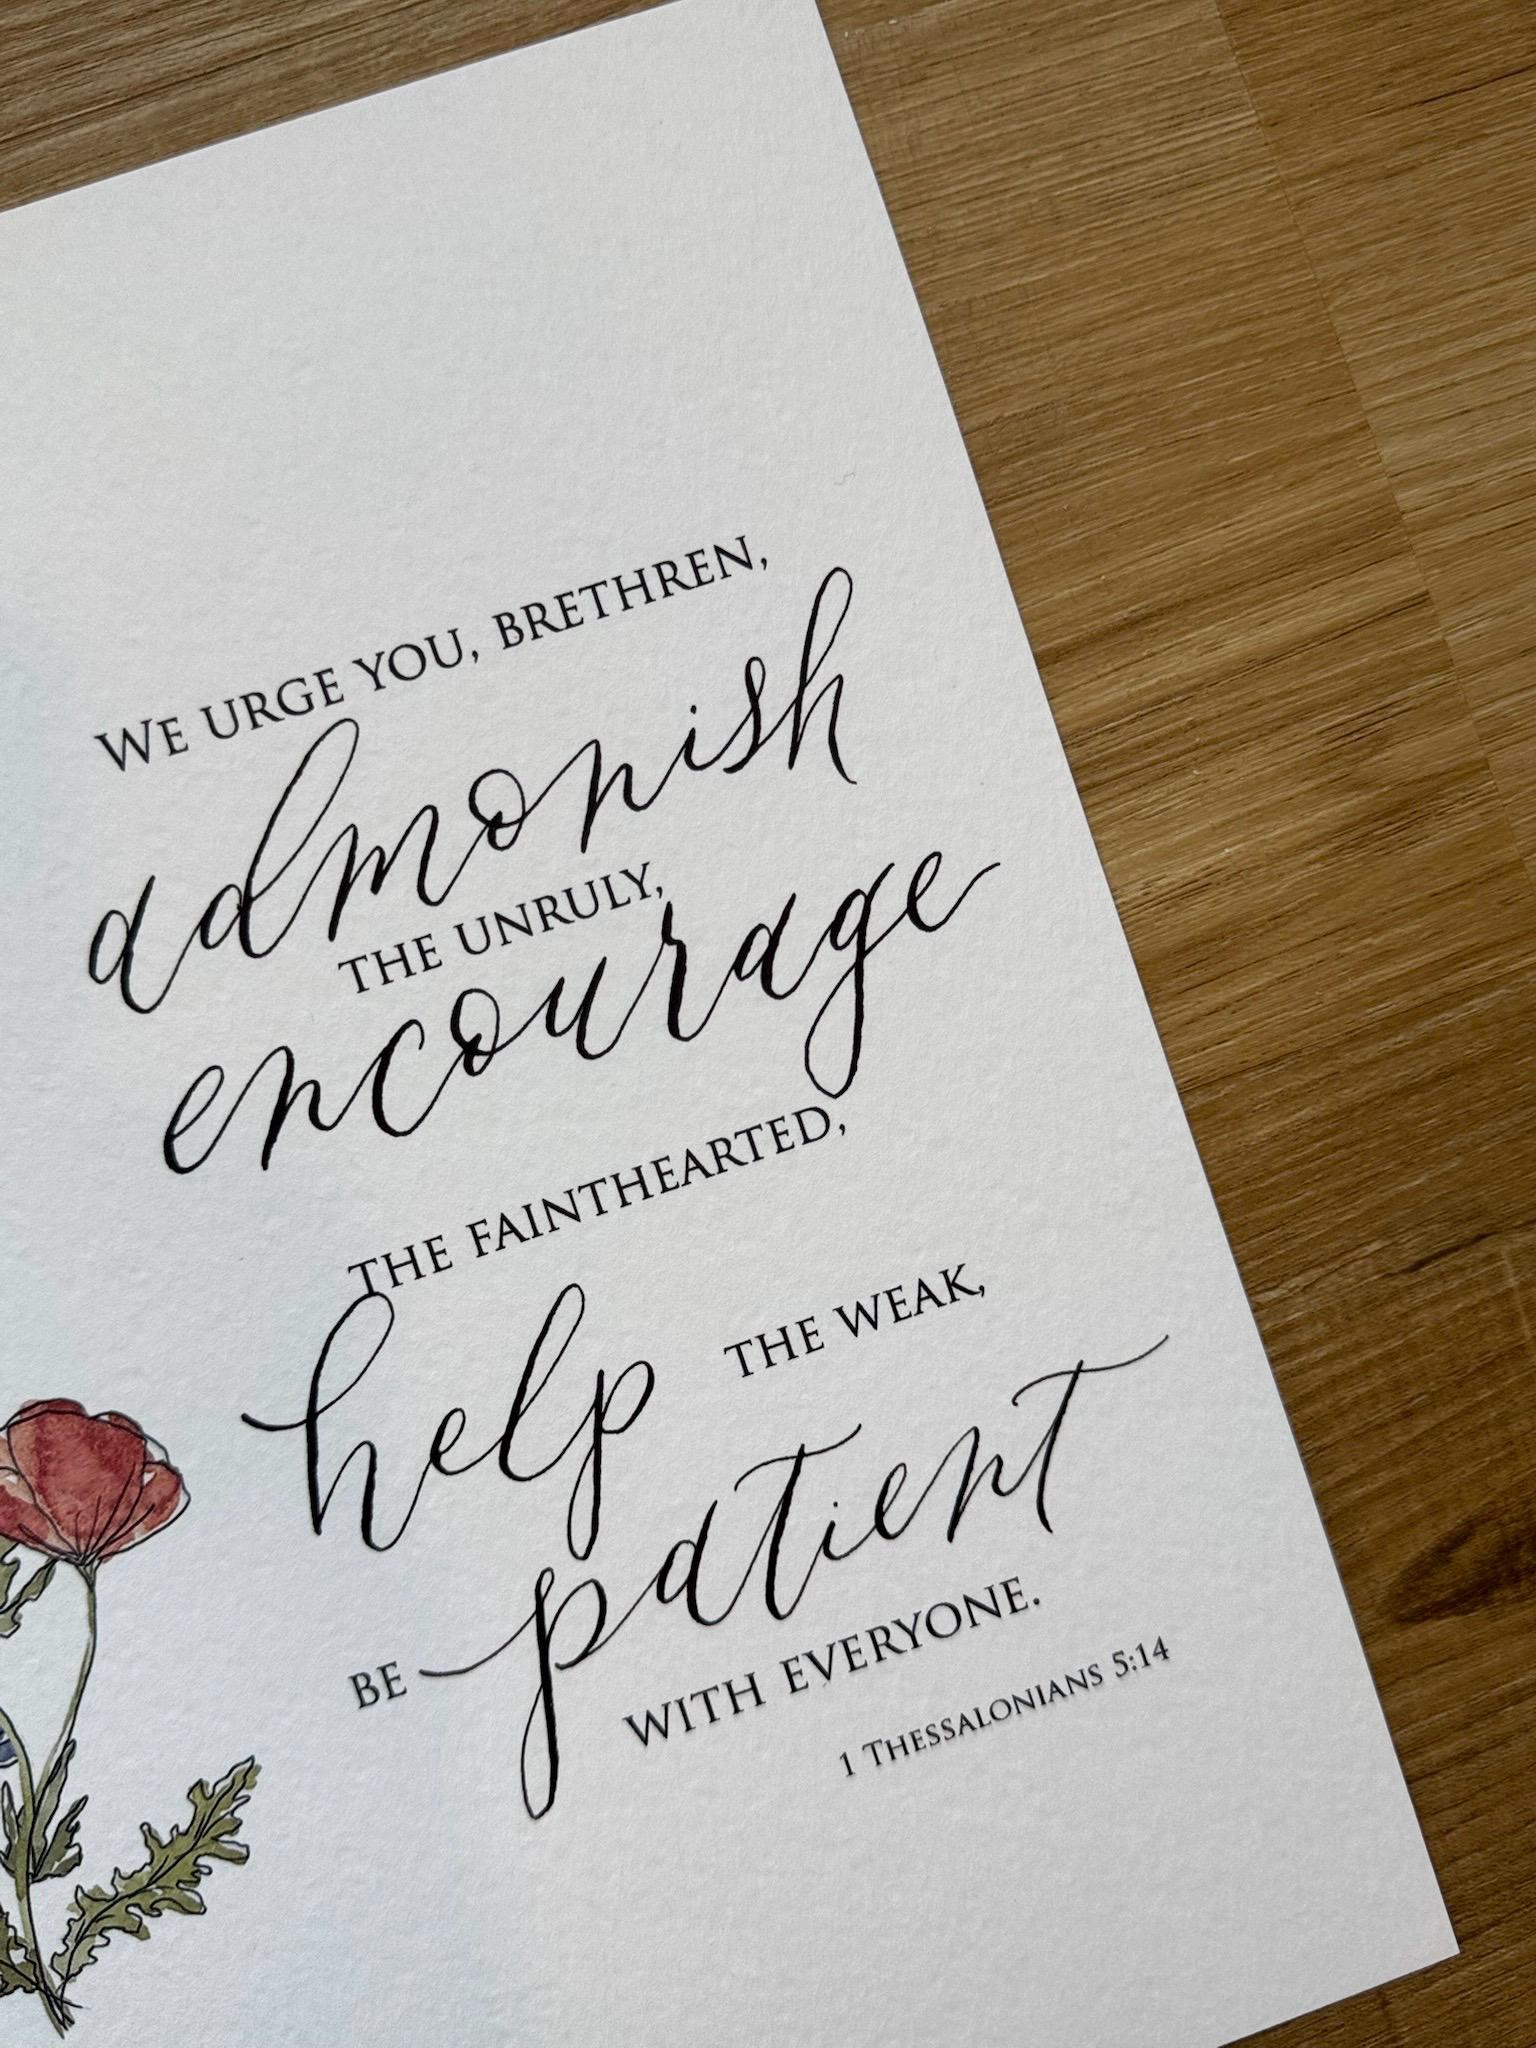 We urge you, brethren,
admonish
the unruly,
encourage
the fainthearted,
help the weak,
be patient
with everyone.
1 Thessalonians 5:14